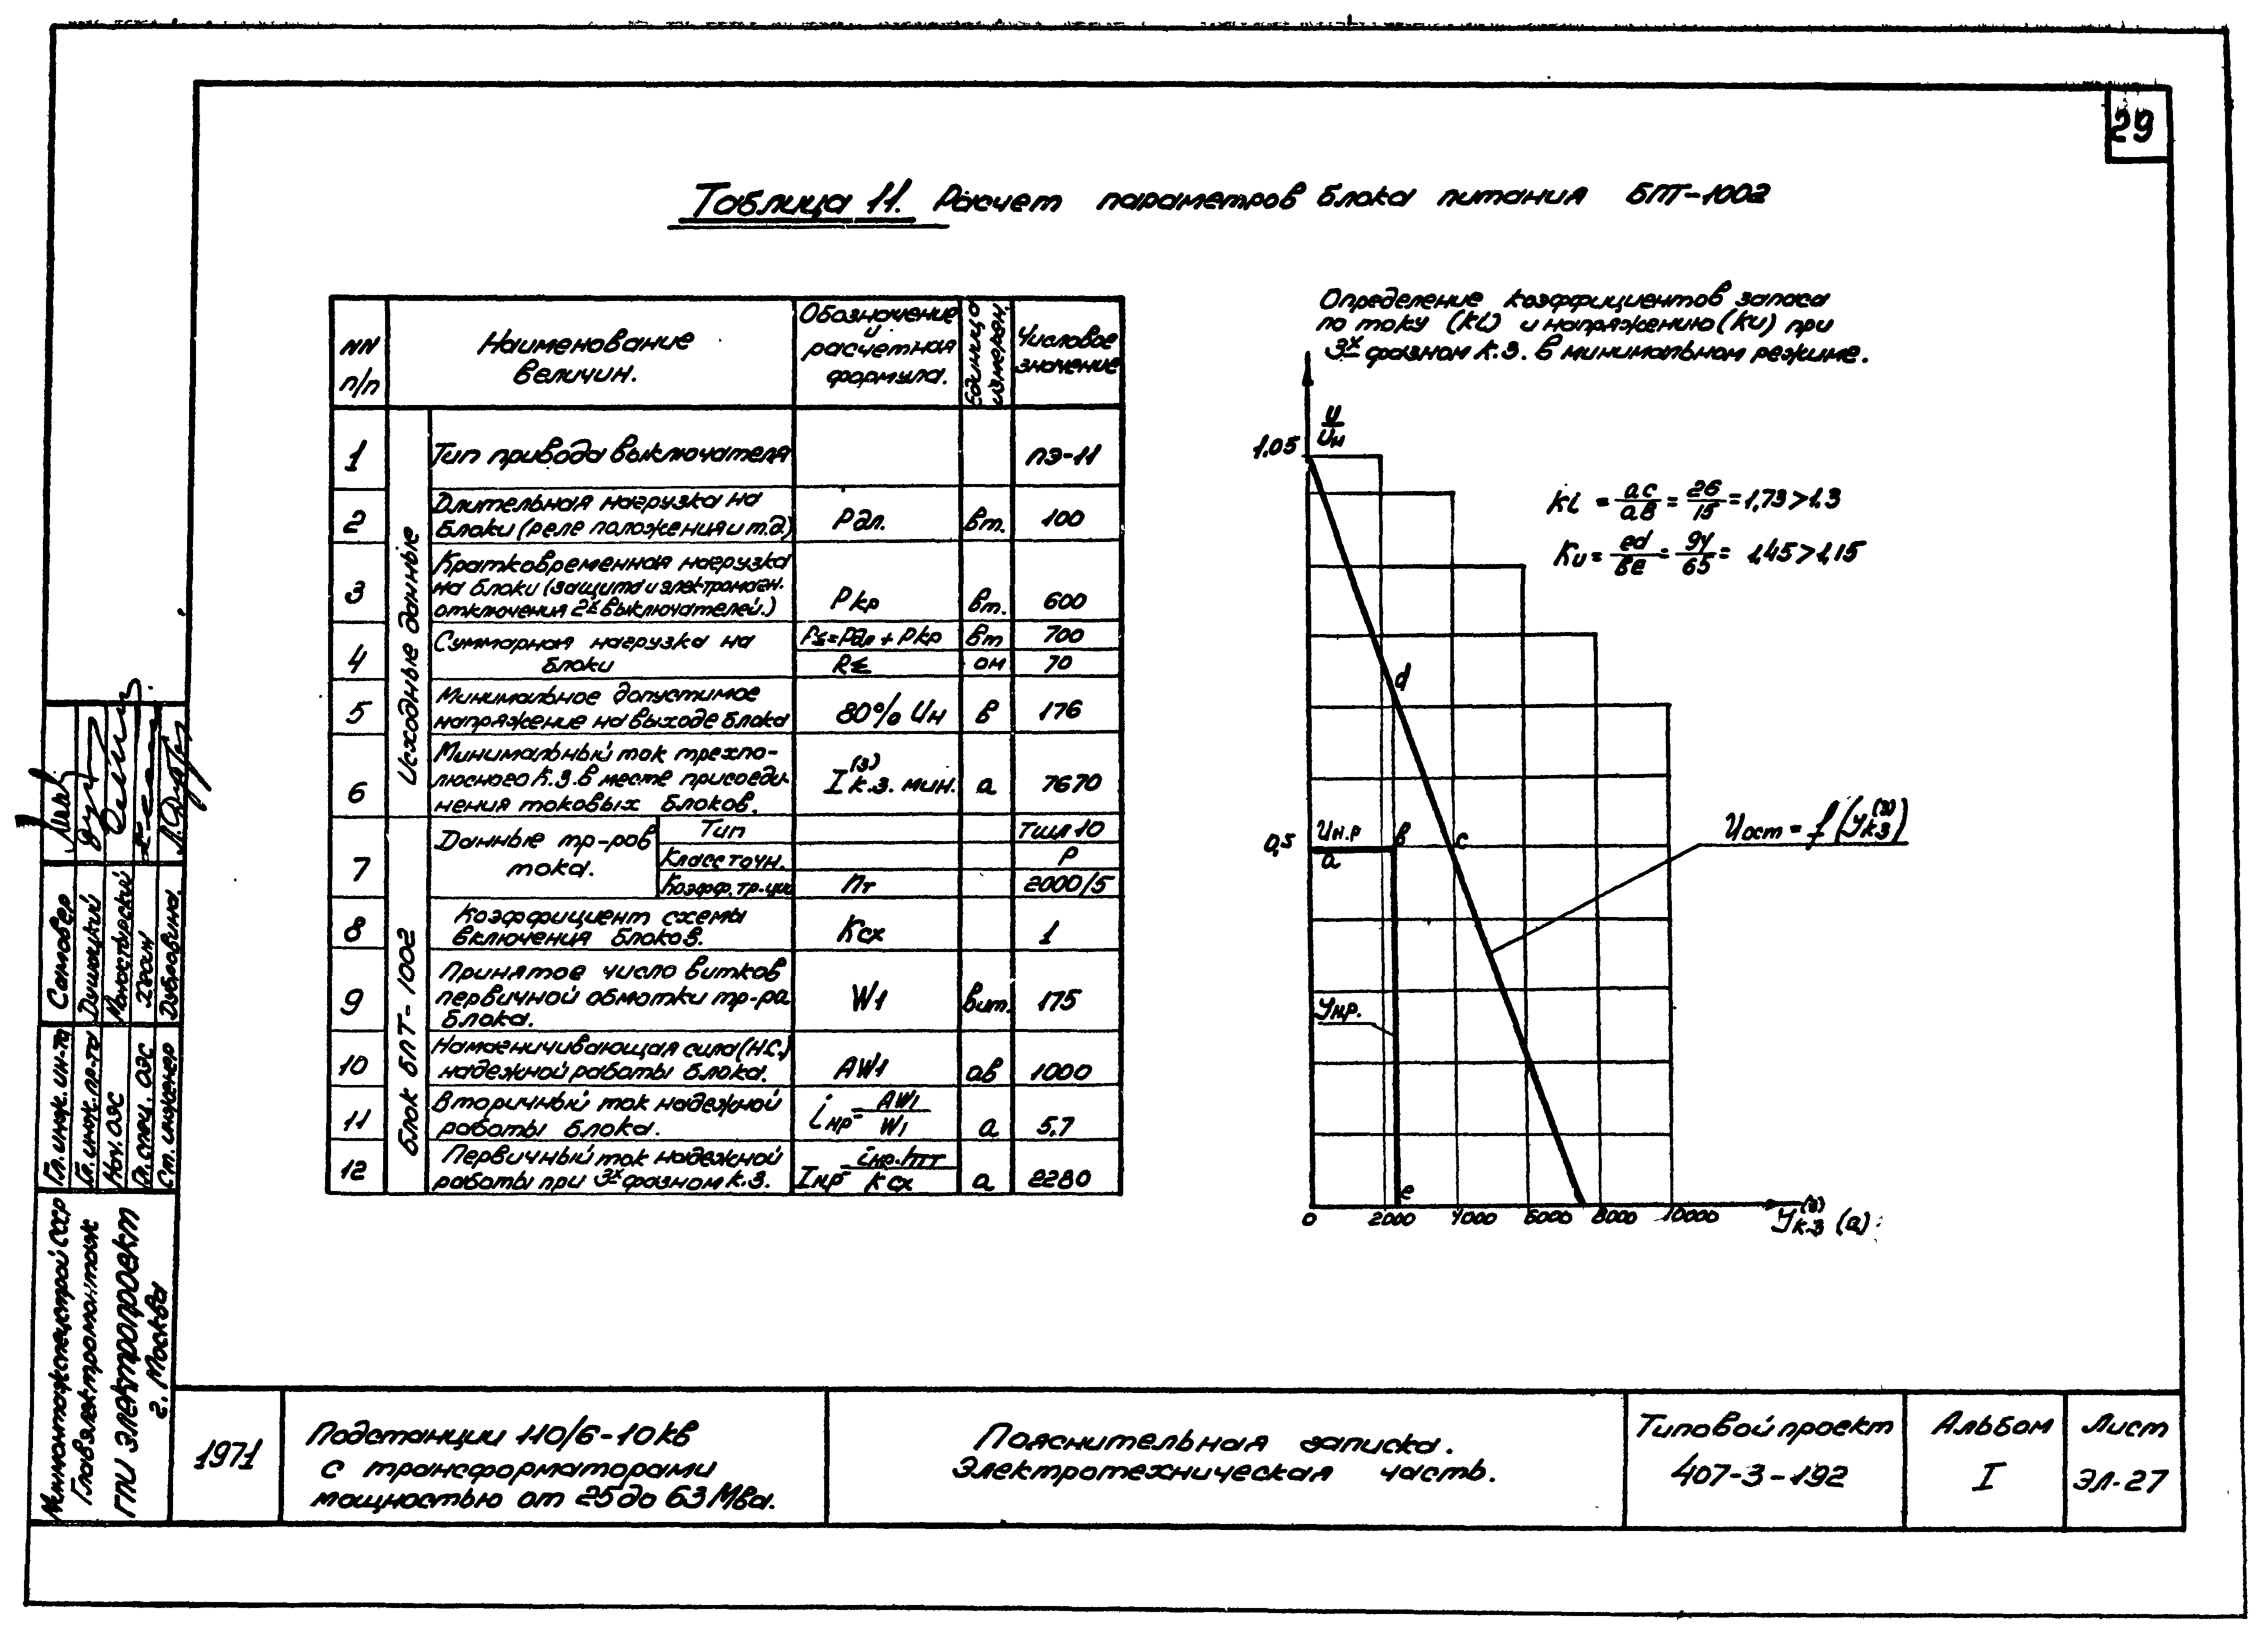 29
Таблица 11. Расчет параметров блока питания БПТ-1002
NN п/п
Наименование величин.
Обозначение и расчетная формула.
Единица измерен.
Числовое значение
Исходные данные
1 Тип привода выключателя ПЭ-11
2 Длительная нагрузка на блоки (реле положения и т.д.) Рдл. вт. 100
3 Кратковременная нагрузка на блоки (защита и электромагн. отключения 2х выключателей.) Ркр вт. 600
4 Суммарная нагрузка на блоки РΣ=Рдл + Ркр вт 700
RΣ ом 70
5 Минимальное допустимое напряжение на выходе блока 80% Uн в 176
6 Минимальный ток трехполюсного К.З. в месте присоединения токовых блоков. I(3) к.з. мин. а 7670
Блок БПТ-1002
7 Данные тр-ров тока. Тип ТШЛ 10
Класс точн. Р
Коэфф. тр-ции Пт 2000/5
8 Коэффициент схемы включения блоков. Ксх 1
9 Принятое число витков первичной обмотки тр-ра блока. W1 вит. 175
10 Намагничивающая сила (Н.С.) надежной работы блока. AW1 ав 1000
11 Вторичный ток надежной работы блока. iнр= AW1/W1 а 5,7
12 Первичный ток надежной работы при 3х фазном к.з. Iнр= iнр.nтт/Ксх а 2280
Определение коэффициентов запаса
по току (Ki) и напряжению (Ku) при
3х фазном К.З. в минимальном режиме.
U/Uн
1,05
Ki = ac/ав = 26/15 = 1,73>1,3
Ku = ed/ве = 94/65 = 1,45>1,15
d
0,5
Uн.р
а
в
с
Uост = f(Iк.з(3))
Iнр.
е
0 2000 4000 6000 8000 10000
Iк.з(3) (а)
Самовер
Душацкий
Монастырский
Хваин
Дубровина
Гл. инж. ин-та
Гл. инж. пр-та
Нач. ОЭС
Гл. спец. ОЭС
Ст. инженер
Минмонтажспецстрой СССР
Главэлектромонтаж
ГПИ Электропроект
г. Москва
1971
Подстанции 110/6-10кв
с трансформаторами
мощностью от 25 до 63 Мва.
Пояснительная записка.
Электротехническая часть.
Типовой проект
407-3-192
Альбом
I
Лист
ЭЛ-27